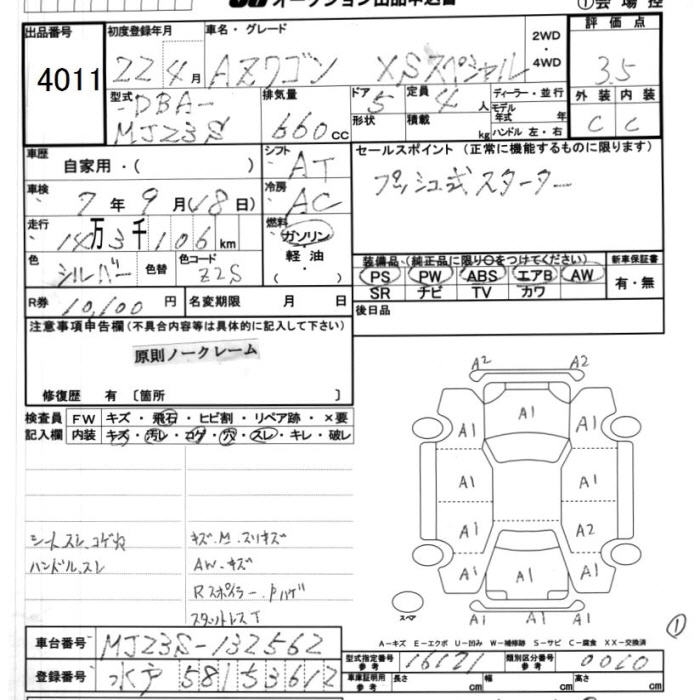 オークション出品申込書
①会場控
出品番号
4011
初度登録年月
22 4月
車名・グレード
AZワゴン XSスペシャル
2WD
・
4WD
評価点
3.5
型式
DBA-
MJ23S
排気量
660cc
ドア 5
形状
定員 4人
積載 kg
ディーラー・並行
モデル年式 年
ハンドル 左・右
外装 内装
C C
車歴
自家用・( )
シフト AT
セールスポイント (正常に機能するものに限ります)
プッシュ式スターター
車検
7年 9月(18日)
冷房 AC
走行
14万3千106km
燃料
ガソリン
軽油
( )
色 シルバー 色替 色コード Z2S
装備品(純正品に限り○をつけてください)
PS PW ABS エアB AW
SR ナビ TV カワ
新車保証書
有・無
R券 10,100円
名変期限 月 日
後日品
注意事項申告欄(不具合内容等は具体的に記入して下さい)
原則ノークレーム
修復歴 有 〔箇所 〕
検査員 FW キズ・飛石・ヒビ割・リペア跡・×要
記入欄 内装 キズ・汚レ・コゲ・穴・スレ・キレ・破レ
シートスレ、コゲ穴
ハンドル、スレ
キズ、M、スリキズ
AW、キズ
Rスポイラー、Pハゲ
スタットレスT
A2 A2
A1
A1 A1
A1 A1
A1 A2
A1 A1 A1
A1 A1
スペア
①
A-キズ E-エクボ U-凹み W-補修跡 S-サビ C-腐食 XX-交換済
車台番号 MJ23S-132562
型式指定番号 参考 16121
類別区分番号 参考 0010
登録番号 水戸 581 5 3612
車庫証明用 参考 長さ cm 幅 cm 高さ cm